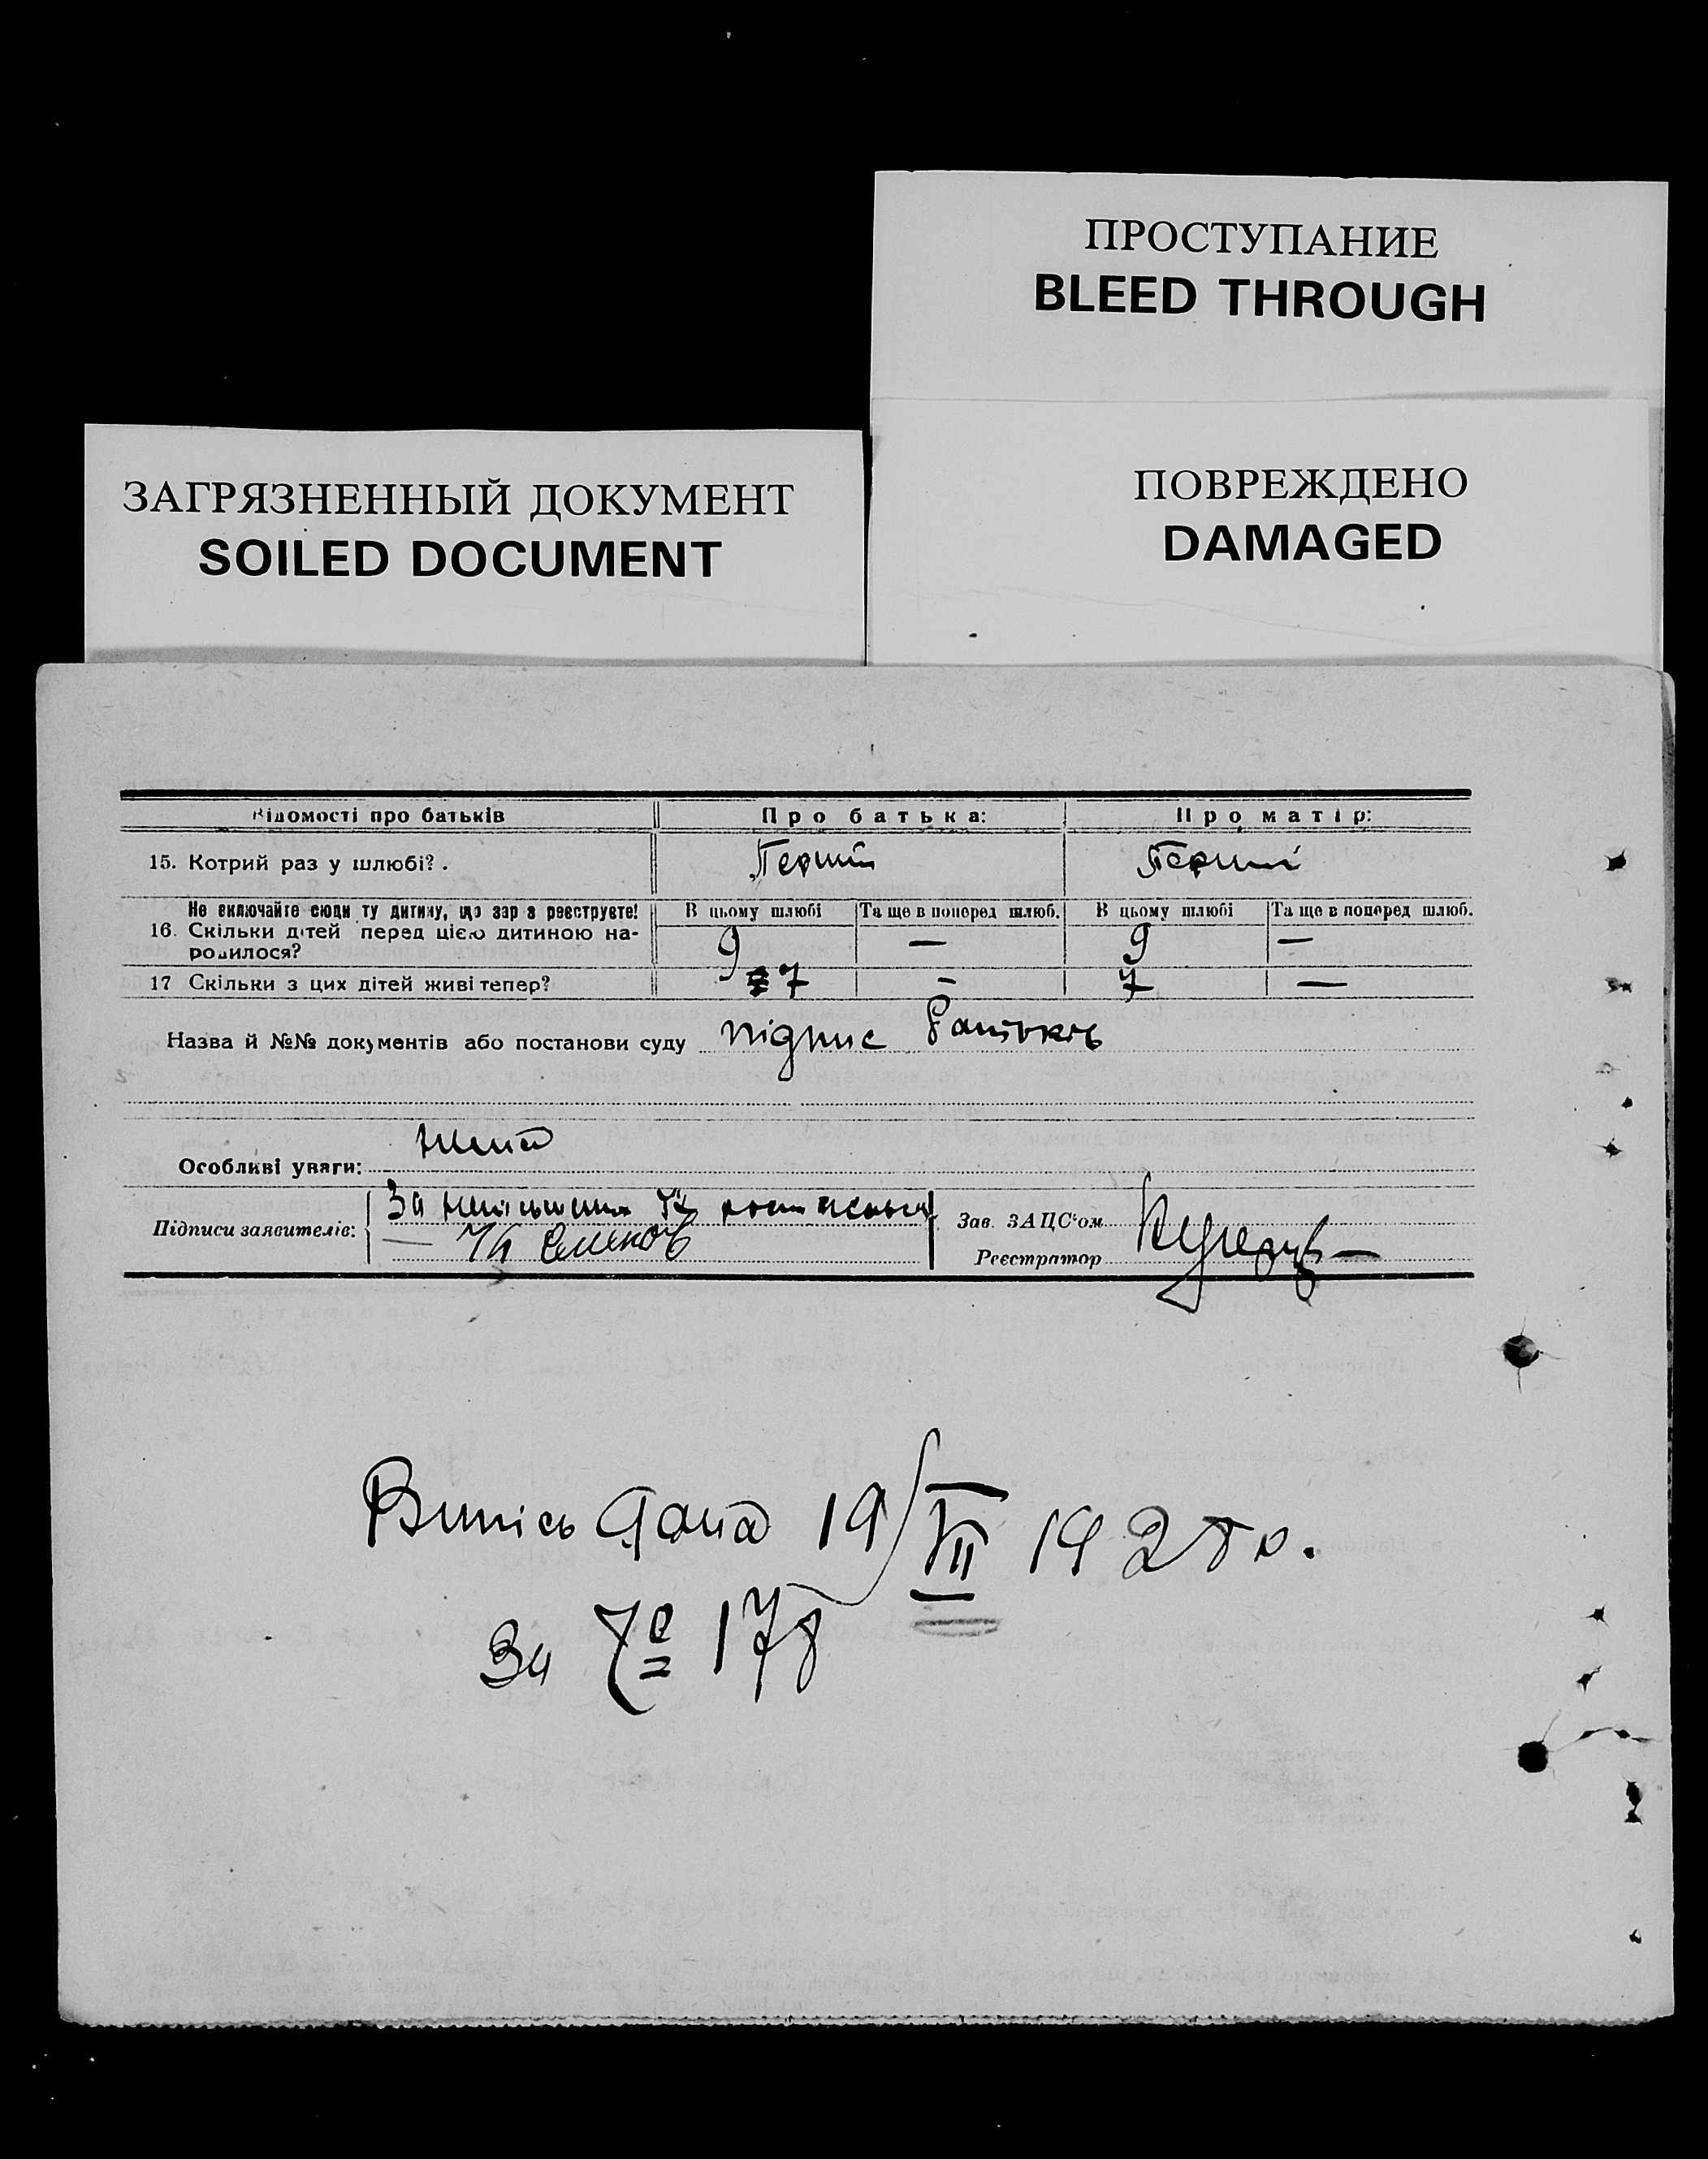 ПРОСТУПАНИЕ
BLEED THROUGH
ЗАГРЯЗНЕННЫЙ ДОКУМЕНТ
SOILED DOCUMENT
ПОВРЕЖДЕНО
DAMAGED
Відомості про батьків Про батька: Про матір:
15. Котрий раз у шлюбі?. Перший Перший
Не включайте сюди ту дитину, що зараз реєструєте! В цьому шлюбі Та ще в поперед шлюб. В цьому шлюбі Та ще в поперед шлюб.
16. Скільки дітей перед цією дитиною на-
родилося? 9 — 9 —
17 Скільки з цих дітей живі тепер? 7 - 7 —
Назва й №№ документів або постанови суду підпис батьків
Особливі уваги:
Підписи заявителів: За
Зав. ЗАЦС'ом
Реєстратор
Випісь дана 19/VII 1928 р.
За № 178